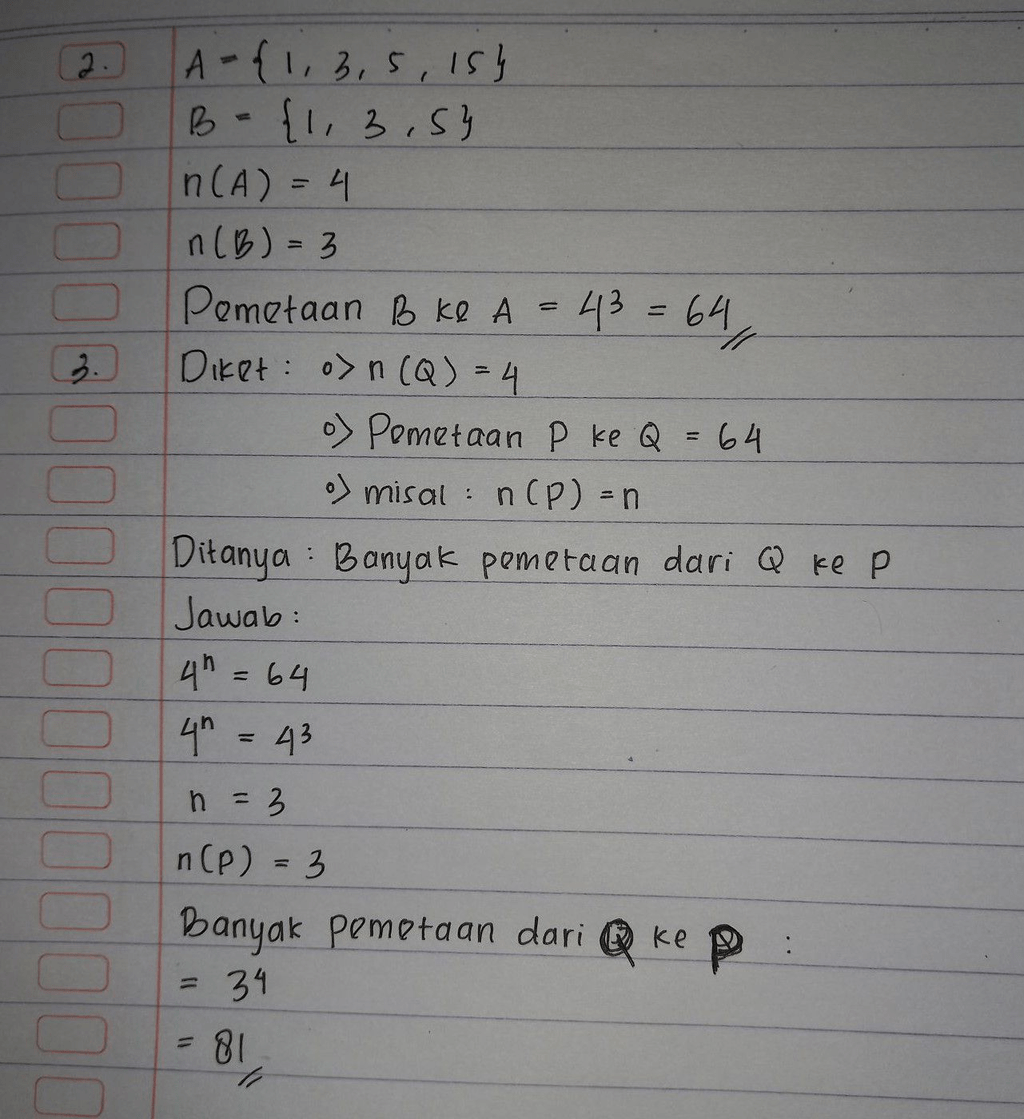 2. A = {1, 3, 5, 15}
B = {1, 3, 5}
n(A) = 4
n(B) = 3
Pemetaan B ke A = 4³ = 64
3. Diket : o> n(Q) = 4
o> Pemetaan P ke Q = 64
o> misal : n(P) = n
Ditanya : Banyak pemetaan dari Q ke P
Jawab :
4ⁿ = 64
4ⁿ = 4³
n = 3
n(P) = 3
Banyak pemetaan dari Q ke P :
= 3⁴
= 81